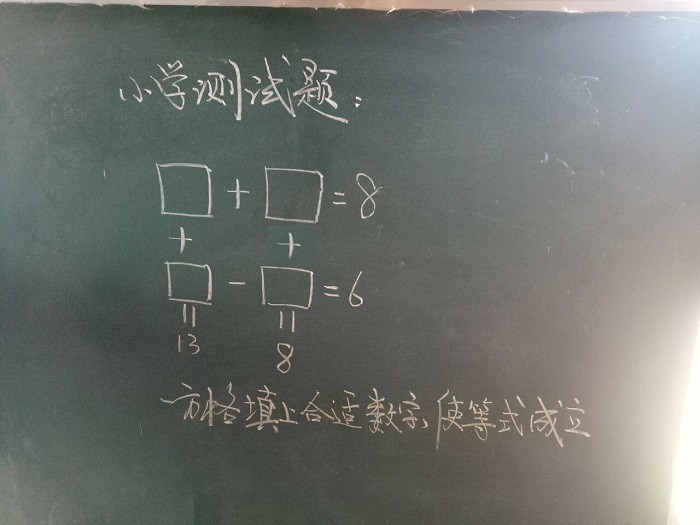 小学测试题:
□ + □ = 8
+ +
□ - □ = 6
= =
13 8
方格填上合适数字、使等式成立